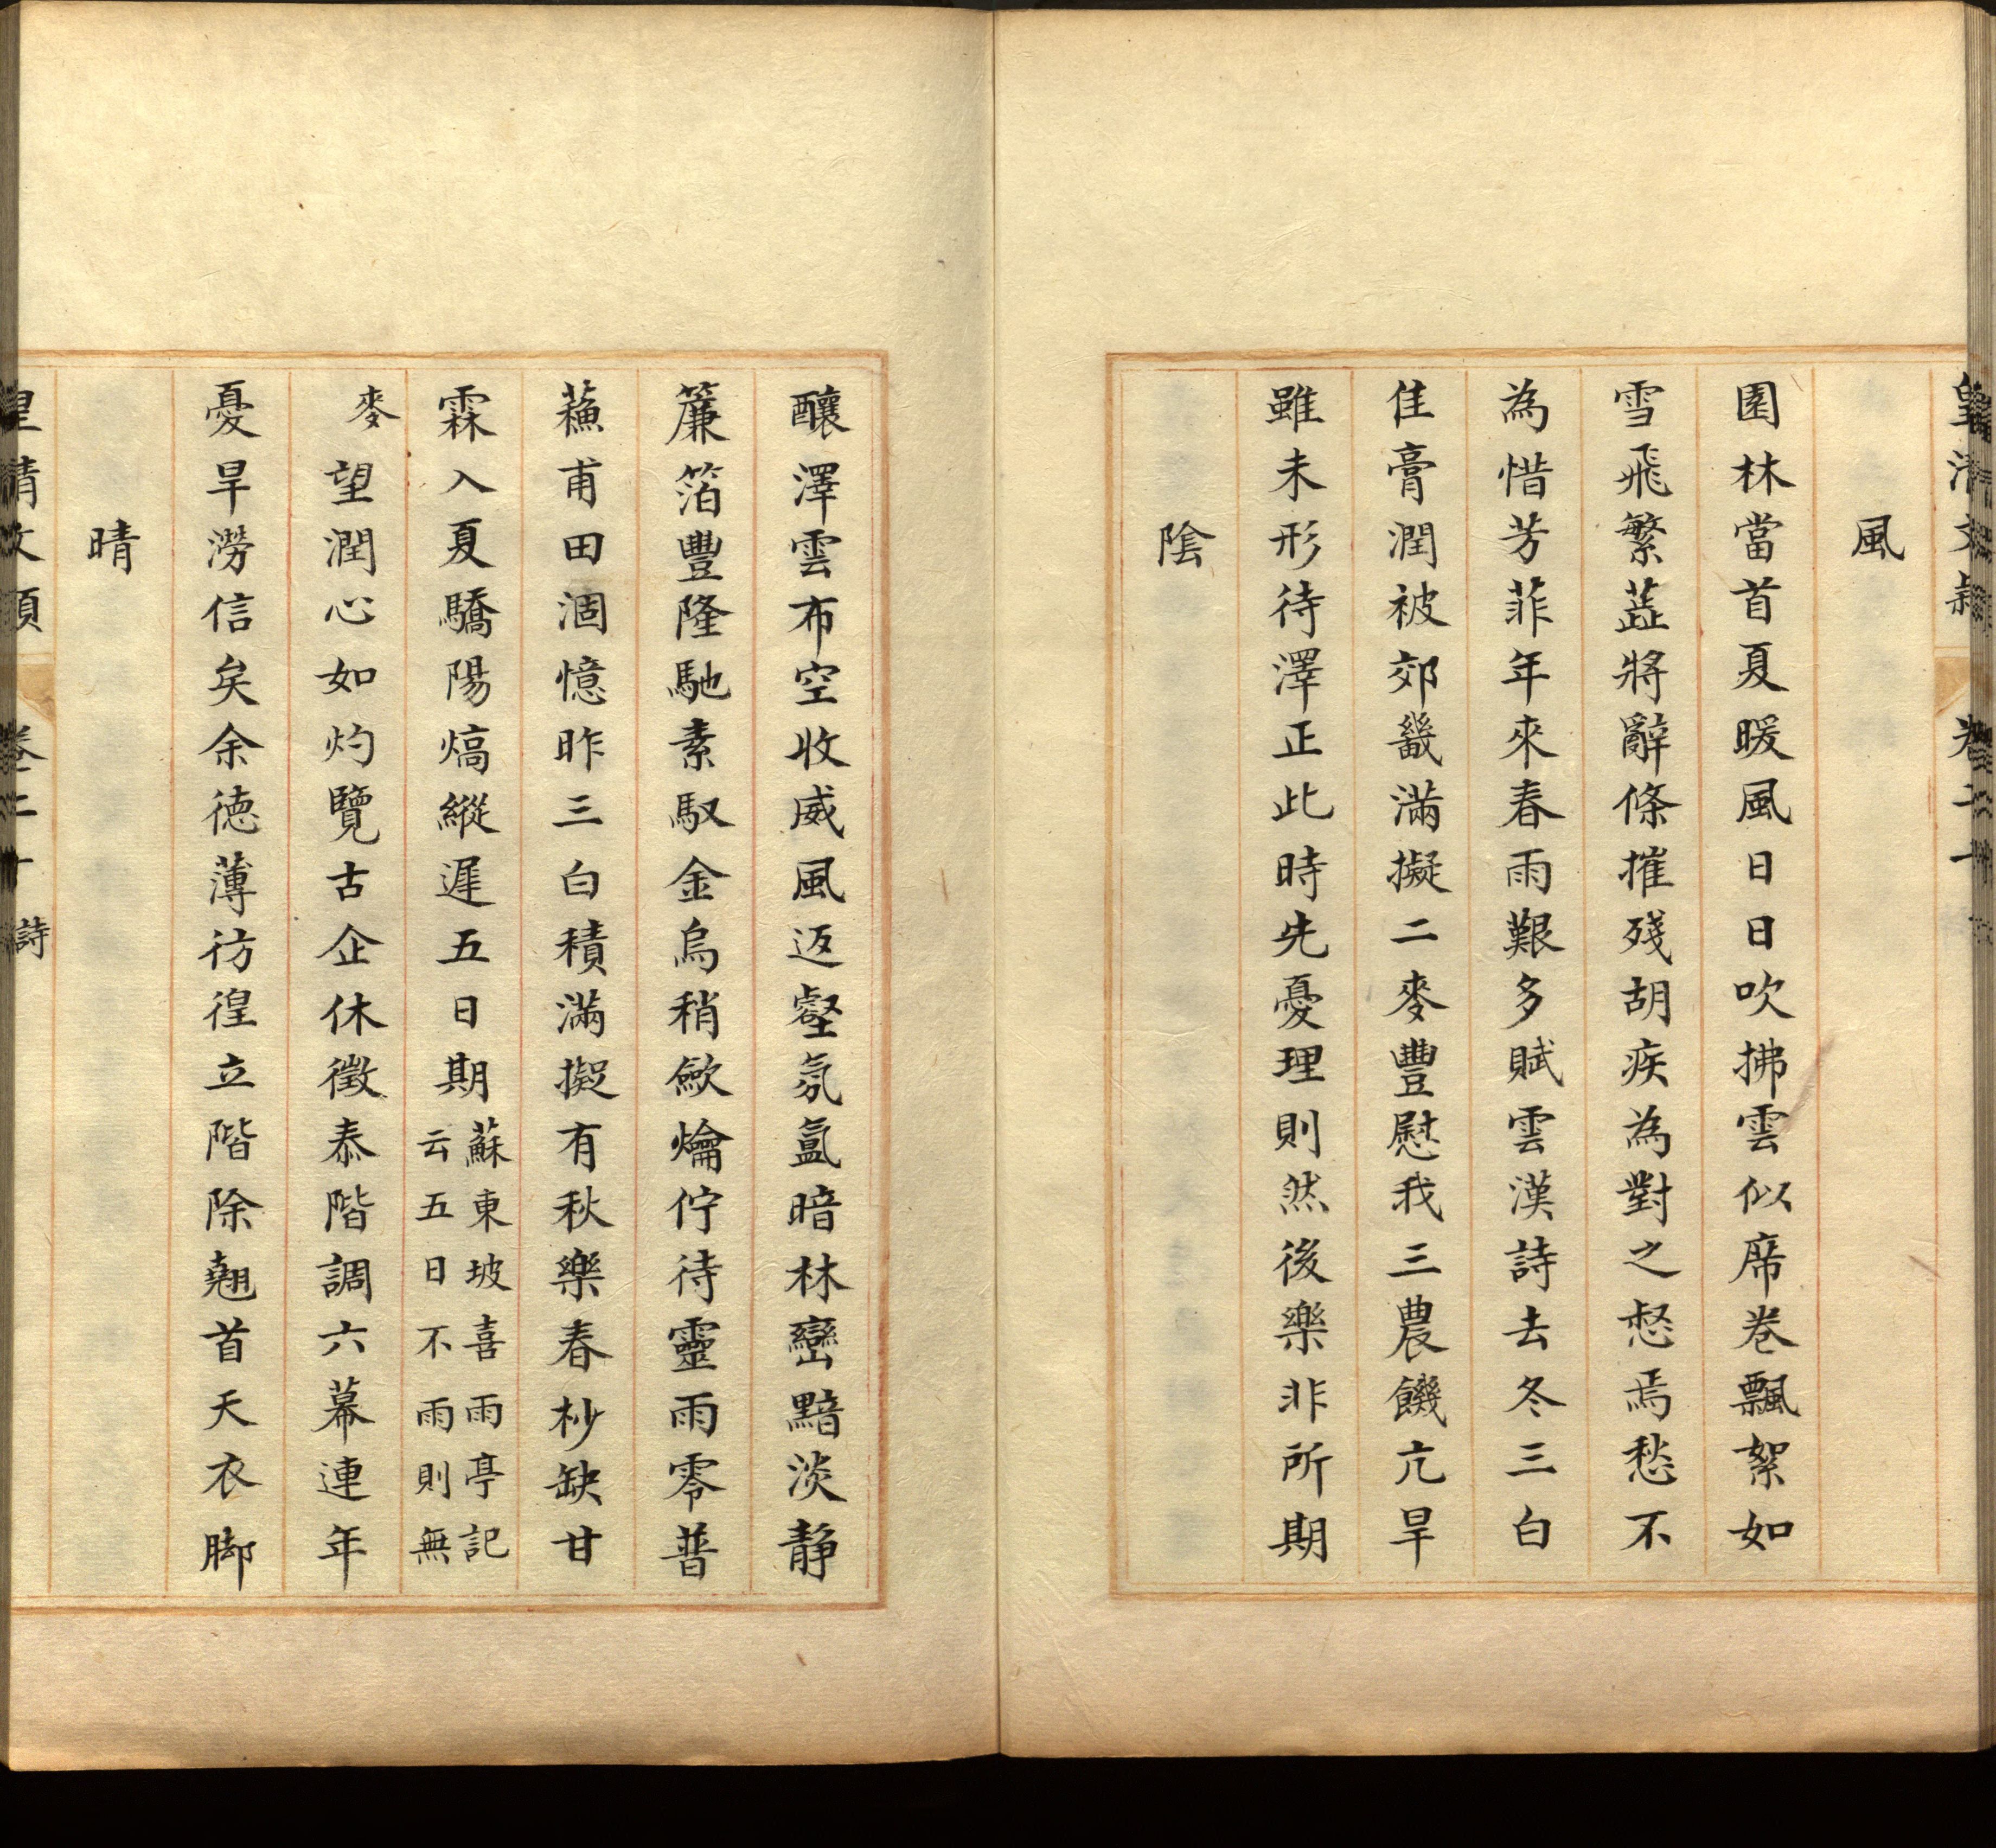 皇清文穎　卷二十
風
園林當首夏暖風日日吹拂雲似席卷飄絮如
雪飛繁蘂將辭條摧殘胡疾為對之惄焉愁不
為惜芳菲年來春雨艱多賦雲漢詩去冬三白
佳膏潤被郊畿滿擬二麥豐慰我三農饑亢旱
雖未形待澤正此時先憂理則然後樂非所期
陰
釀澤雲布空收威風返壑氛氳暗林巒黯淡靜
簾箔豐隆馳素馭金烏稍歛爚佇待靈雨零普
蘓甫田涸憶昨三白積滿擬有秋樂春杪缺甘
霖入夏驕陽熇縱遲五日期
蘇東坡喜雨亭記
云五日不雨則無
麥
望潤心如灼覽古企休徵泰階調六幕連年
憂旱澇信矣余德薄彷徨立階除翹首天衣脚
晴
皇清文穎　卷二十　詩